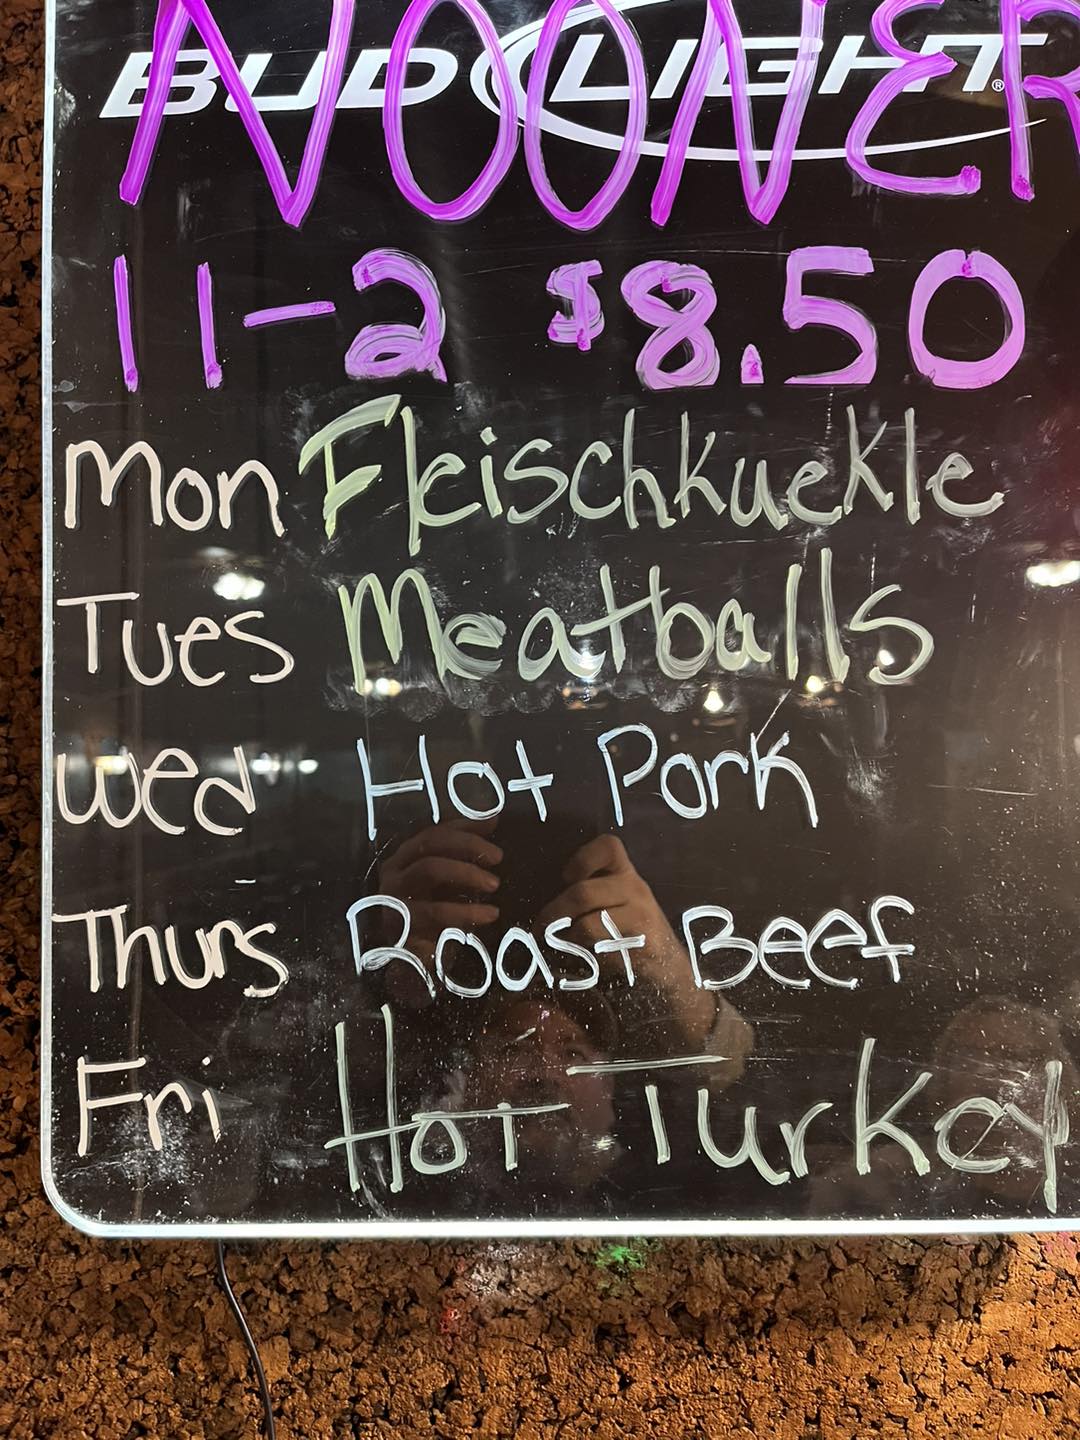 NOONER
BUD LIGHT®
11-2 $8.50
Mon Fleischkuekle
Tues Meatballs
Wed Hot Pork
Thurs Roast Beef
Fri Hot Turkey